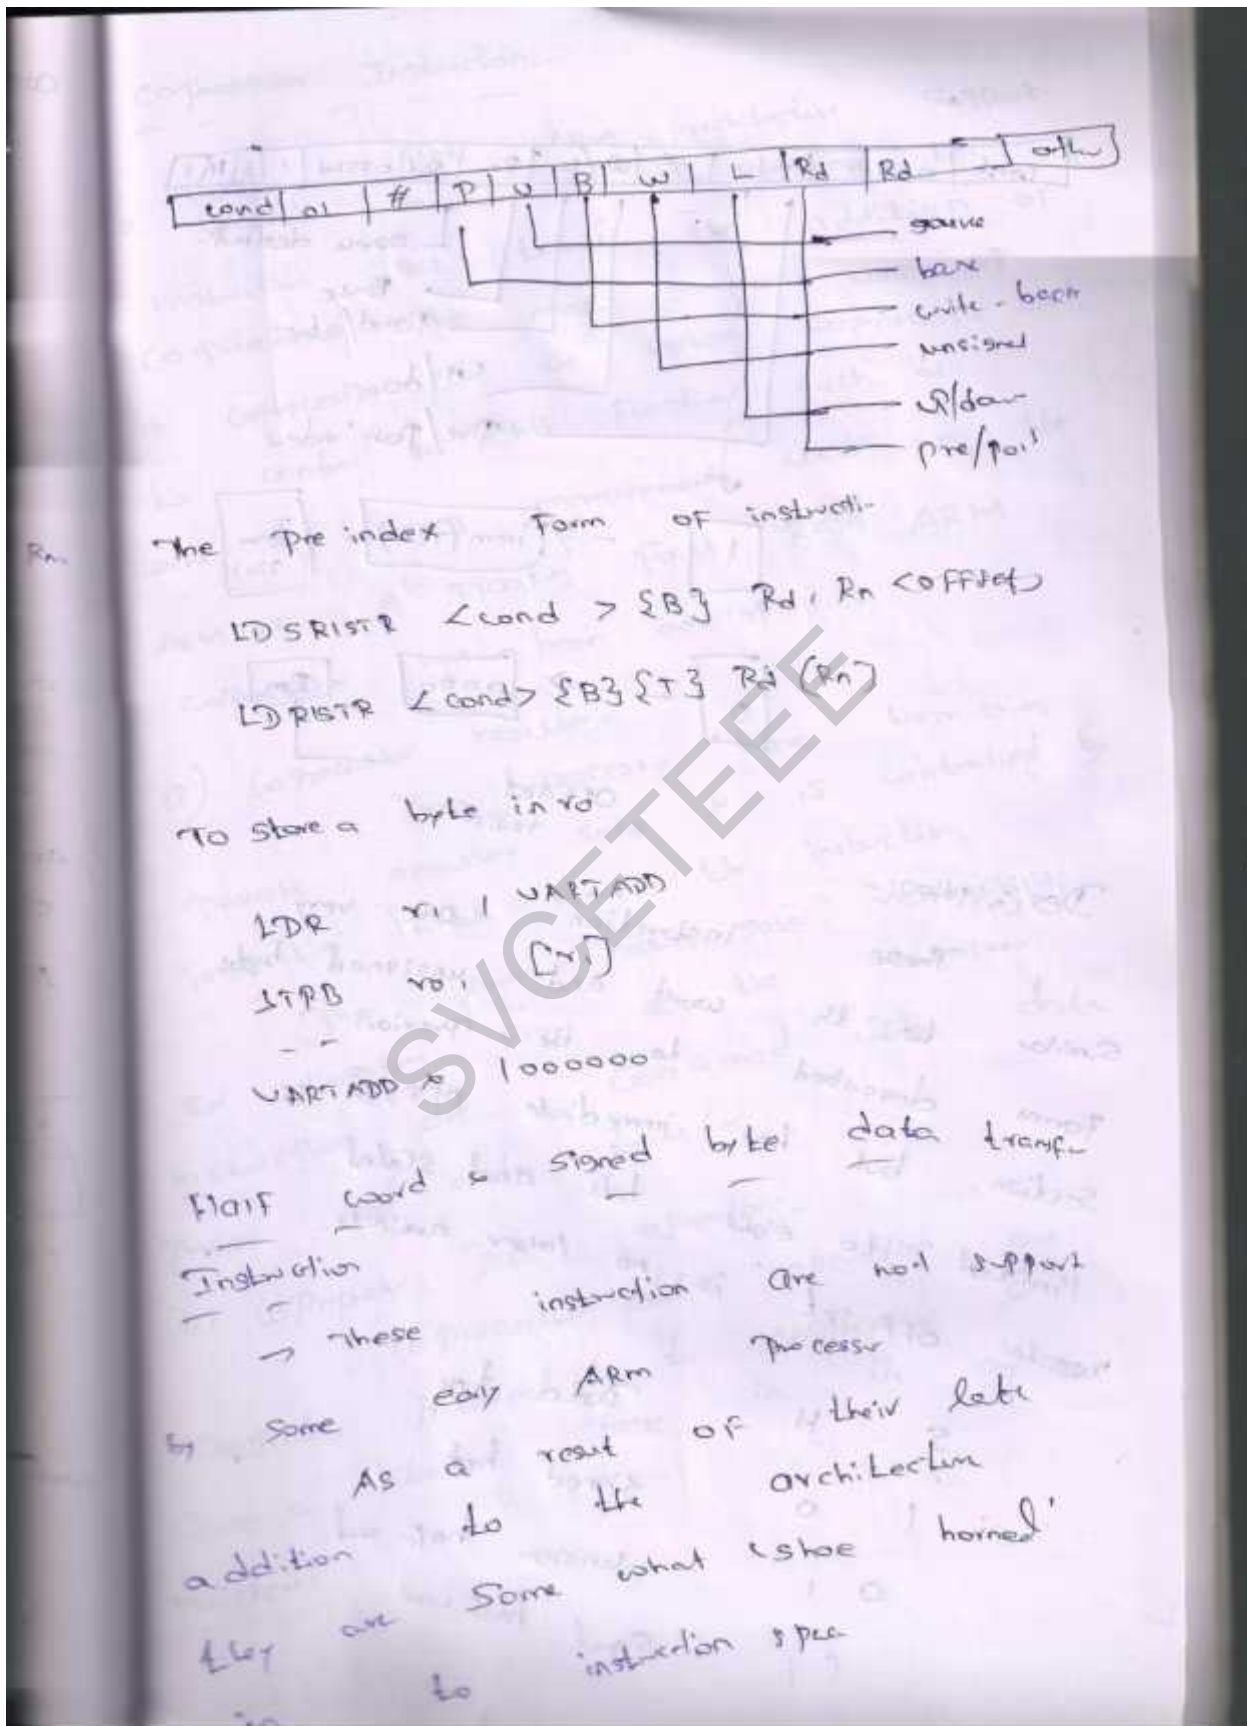 cond 01 # P U B W L Rd Rd
base
unsigned
pre/
Rn
The Pre index Form of instructi-
LDSRISTR <cond > {B} Rd, Rn <offset>
LDRISTR <cond> {B} {T} Rd (Rn]
To Store a byte in ro
LDR r1, UARTADD
STRB ro, [r1]
UARTADD & 1000000
SVCETEEE
Half word & signed byte data transf
Instruction
→ These instruction are not support
by some eary ARM Processr
As a resut of their late
addition to the architecture
they are Some what 'shoe horned'
in to instruction spea